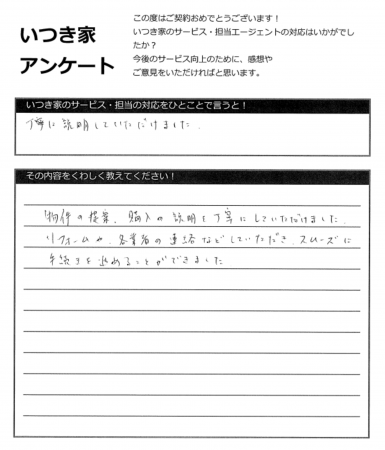 いつき家
アンケート
この度はご契約おめでとうございます！
いつき家のサービス・担当エージェントの対応はいかがでし
たか？
今後のサービス向上のために、感想や
ご意見をいただければと思います。
いつき家のサービス・担当の対応をひとことで言うと！
丁寧に説明していただけました.
その内容をくわしく教えてください！
物件の提案、購入の説明も丁寧にしていただけました.
リフォームや、各業者の連絡などしていただき、スムーズに
手続きを進めることができました